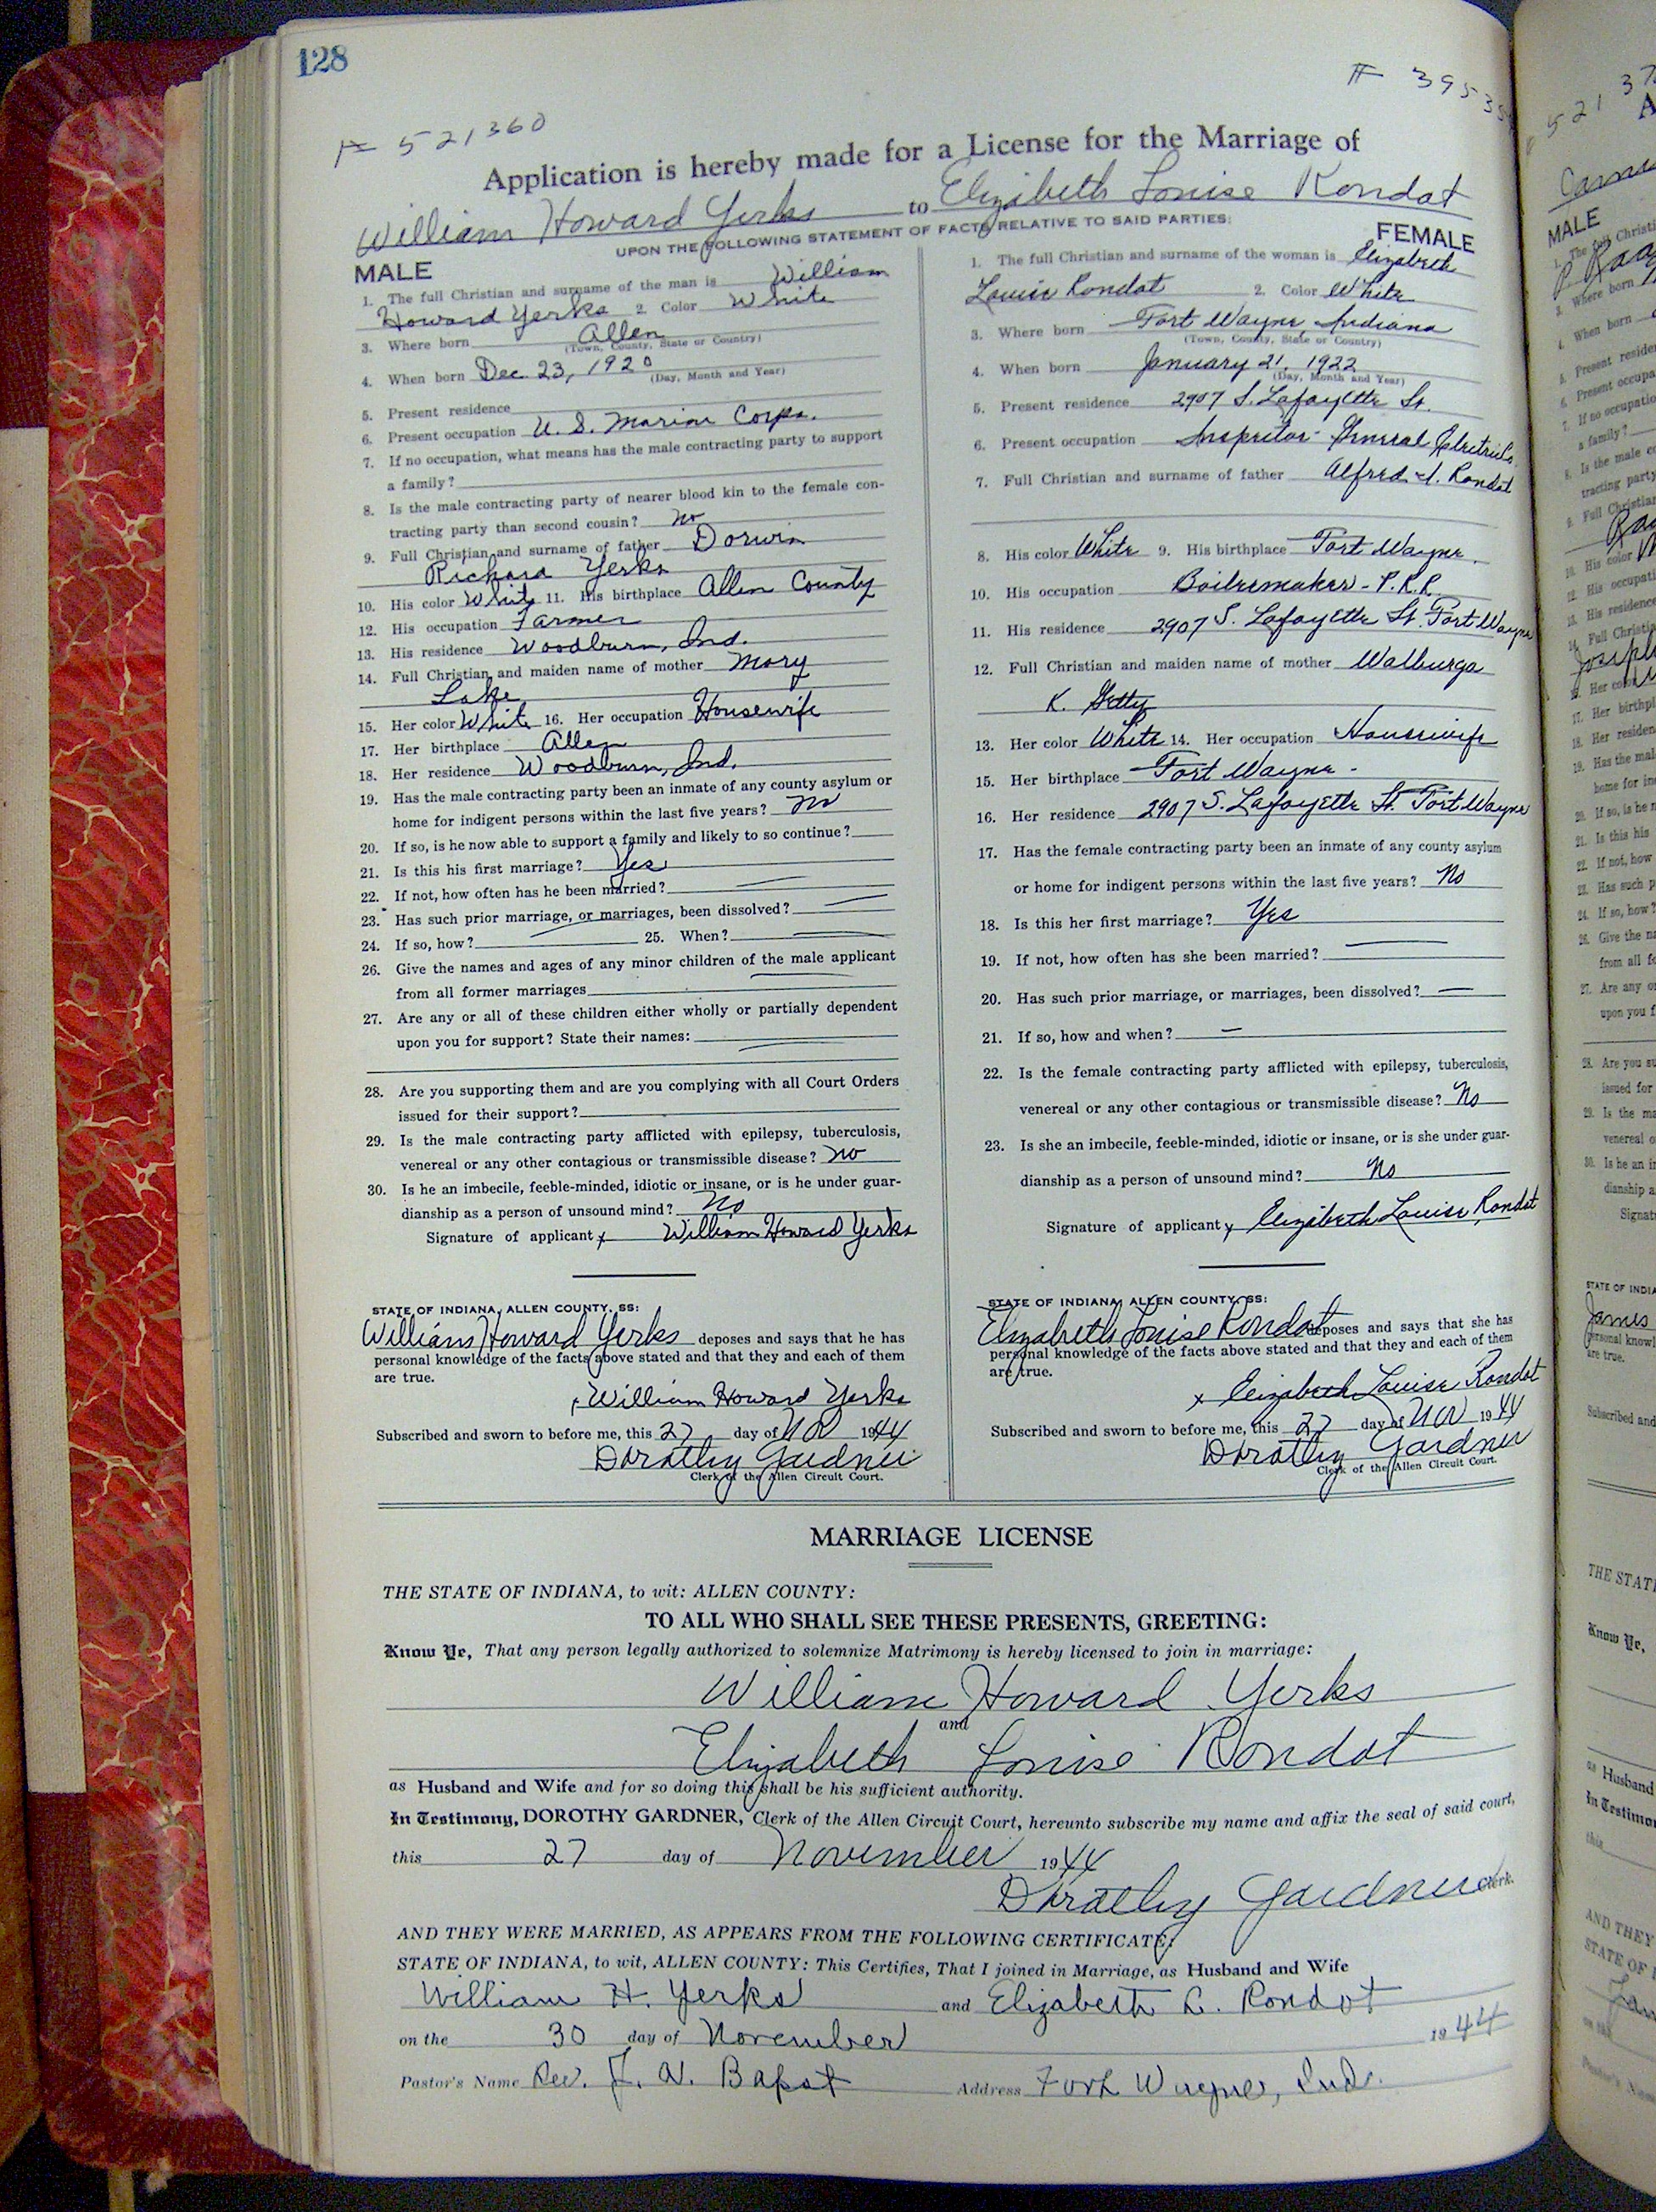 128
# 521360
# 3953
Application is hereby made for a License for the Marriage of
William Howard Yerks to Elizabeth Louise Rondot
UPON THE FOLLOWING STATEMENT OF FACTS RELATIVE TO SAID PARTIES:
MALE
1. The full Christian and surname of the man is William
Howard Yerks 2. Color White
3. Where born Allen
(Town, County, State or Country)
4. When born Dec 23, 1920
(Day, Month and Year)
5. Present residence
6. Present occupation U. S. Marine Corps.
7. If no occupation, what means has the male contracting party to support
a family?
8. Is the male contracting party of nearer blood kin to the female con-
tracting party than second cousin? no
9. Full Christian and surname of father Dorwin
Richard Yerks
10. His color White 11. His birthplace Allen County
12. His occupation Farmer
13. His residence Woodburn, Ind.
14. Full Christian and maiden name of mother Mary
Lake
15. Her color White 16. Her occupation Housewife
17. Her birthplace Allen
18. Her residence Woodburn, Ind.
19. Has the male contracting party been an inmate of any county asylum or
home for indigent persons within the last five years? no
20. If so, is he now able to support a family and likely to so continue?
21. Is this his first marriage? Yes
22. If not, how often has he been married?
23. Has such prior marriage, or marriages, been dissolved?
24. If so, how? 25. When?
26. Give the names and ages of any minor children of the male applicant
from all former marriages
27. Are any or all of these children either wholly or partially dependent
upon you for support? State their names:
28. Are you supporting them and are you complying with all Court Orders
issued for their support?
29. Is the male contracting party afflicted with epilepsy, tuberculosis,
venereal or any other contagious or transmissible disease? no
30. Is he an imbecile, feeble-minded, idiotic or insane, or is he under guar-
dianship as a person of unsound mind? No
Signature of applicant x William Howard Yerks
STATE OF INDIANA, ALLEN COUNTY, SS:
William Howard Yerks deposes and says that he has
personal knowledge of the facts above stated and that they and each of them
are true.
x William Howard Yerks
Subscribed and sworn to before me, this 27 day of Nov 1944
Dorothy Gardner
Clerk of the Allen Circuit Court.
FEMALE
1. The full Christian and surname of the woman is Elizabeth
Louise Rondot 2. Color White
3. Where born Fort Wayne, Indiana
(Town, County, State or Country)
4. When born January 21, 1922
(Day, Month and Year)
5. Present residence 2907 S. Lafayette St.
6. Present occupation Inspector - General Electric Co.
7. Full Christian and surname of father Alfred J. Rondot
8. His color White 9. His birthplace Fort Wayne.
10. His occupation Boilermaker - P.R.R.
11. His residence 2907 S. Lafayette St. Fort Wayne
12. Full Christian and maiden name of mother Walburga
K. Getty
13. Her color White 14. Her occupation Housewife
15. Her birthplace Fort Wayne -
16. Her residence 2907 S. Lafayette St. Fort Wayne
17. Has the female contracting party been an inmate of any county asylum
or home for indigent persons within the last five years? No
18. Is this her first marriage? Yes
19. If not, how often has she been married?
20. Has such prior marriage, or marriages, been dissolved?
21. If so, how and when?
22. Is the female contracting party afflicted with epilepsy, tuberculosis,
venereal or any other contagious or transmissible disease? No
23. Is she an imbecile, feeble-minded, idiotic or insane, or is she under guar-
dianship as a person of unsound mind? No
Signature of applicant x Elizabeth Louise Rondot
STATE OF INDIANA, ALLEN COUNTY, SS:
Elizabeth Louise Rondot deposes and says that she has
personal knowledge of the facts above stated and that they and each of them
are true.
x Elizabeth Louise Rondot
Subscribed and sworn to before me, this 27 day of Nov 1944
Dorothy Gardner
Clerk of the Allen Circuit Court.
MARRIAGE LICENSE
THE STATE OF INDIANA, to wit: ALLEN COUNTY:
TO ALL WHO SHALL SEE THESE PRESENTS, GREETING:
Know Ye, That any person legally authorized to solemnize Matrimony is hereby licensed to join in marriage:
William Howard Yerks
and
Elizabeth Louise Rondot
as Husband and Wife and for so doing this shall be his sufficient authority.
In Testimony, DOROTHY GARDNER, Clerk of the Allen Circuit Court, hereunto subscribe my name and affix the seal of said court,
this 27 day of November 1944
Dorothy Gardner Clerk.
AND THEY WERE MARRIED, AS APPEARS FROM THE FOLLOWING CERTIFICATE:
STATE OF INDIANA, to wit, ALLEN COUNTY: This Certifies, That I joined in Marriage, as Husband and Wife
William H. Yerks and Elizabeth L. Rondot
on the 30 day of November 1944
Pastor's Name Rev. J. N. Bapst Address Fort Wayne, Ind.